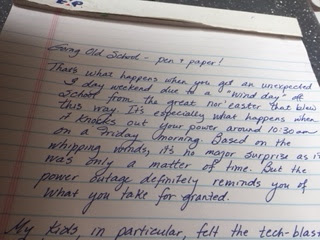 Going Old School - pen + paper!
That's what happens when you get an unexpected
3 day weekend due to a "wind day" off
school from the great nor'easter that blew
this way. It's especially what happens when
it knocks out your power around 10:30 am
on a Friday morning. Based on the
whipping winds, it's no major surprise as it
was only a matter of time. But the
power outage definitely reminds you of
what you take for granted.
My kids, in particular, felt the tech-blast